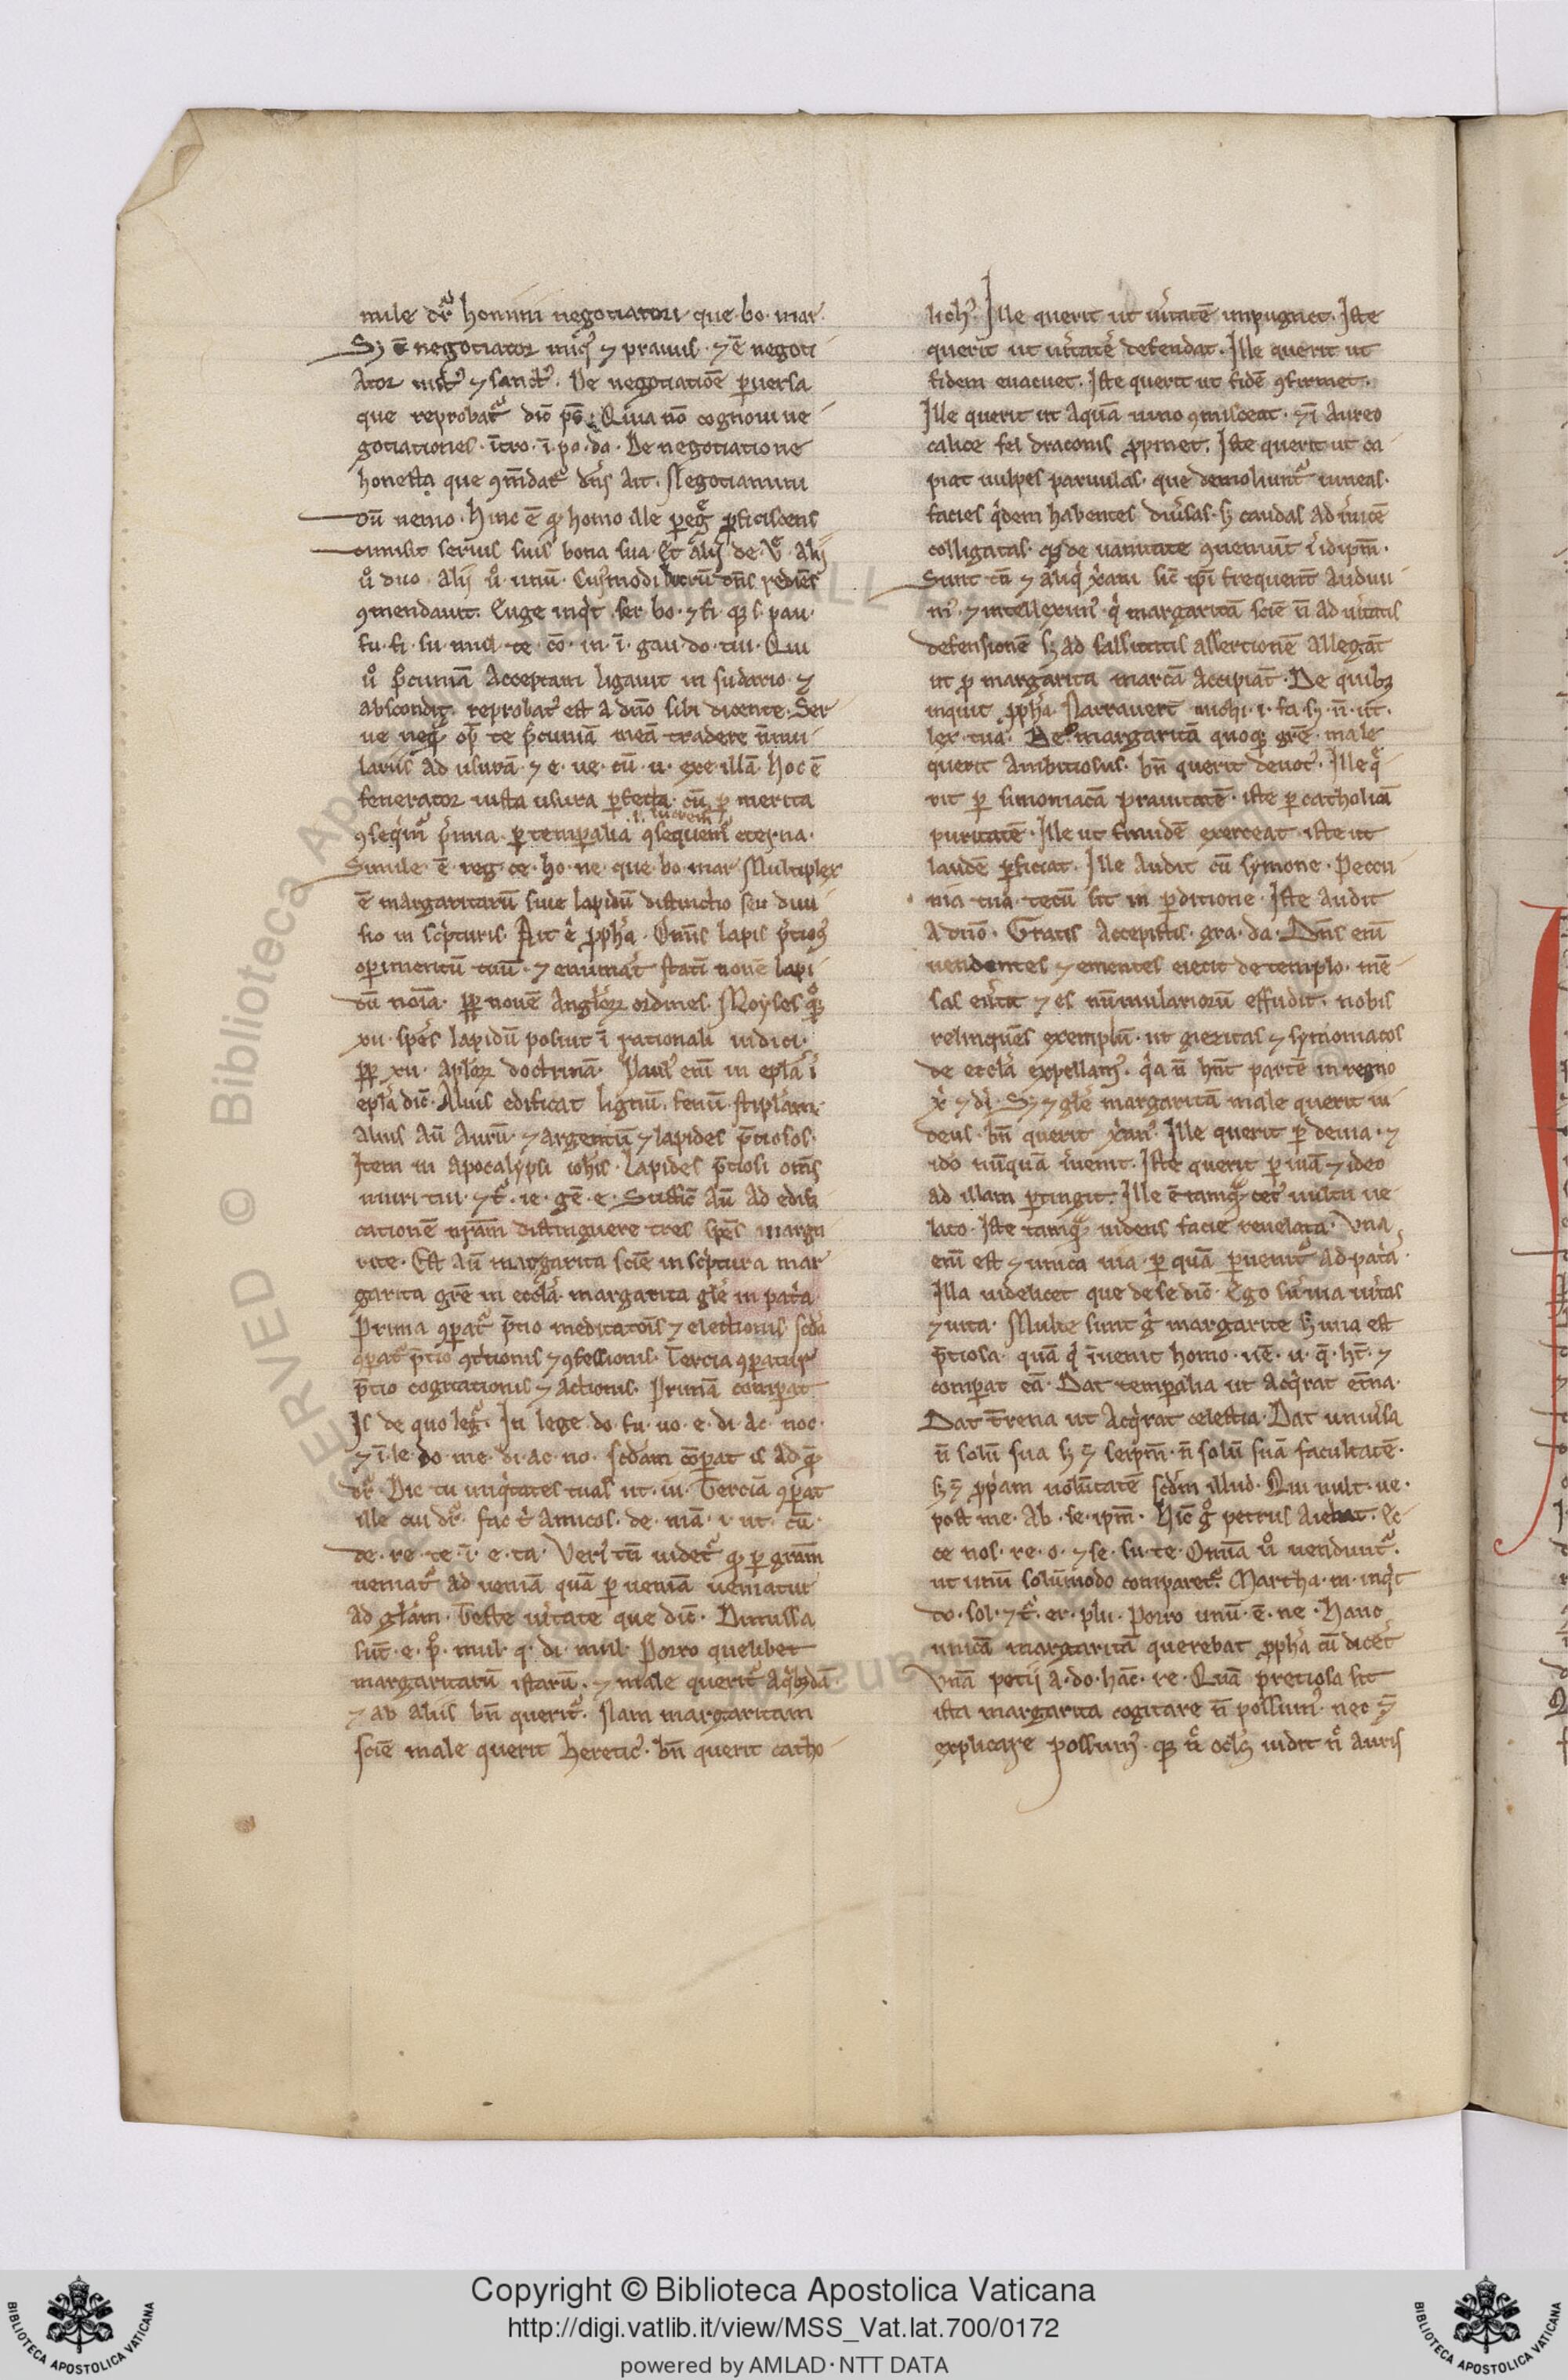 mile dr̄ homini negotiatori que bo. mar.
Sꝫ ē negotiator iniq᷒ ⁊ prauus. ⁊ ē negoti
ator iust᷒ ⁊ sanct᷒. De negotiatiōe ꝑuersa
que reprobat᷑ dic̄ ps̄. Quia nō cognoui ne
gotiationes. ītro. ī. po. dn̄. De negotiatione
honesta que ꝯm̄dat᷑ dn̄s ait. Negotiamini
dū uenio. Hinc ē ꝙ homo ille ꝑeḡ ꝓficiscens
bona sua
u͛o duo. alij u͛o unū. Cui᷒modi lucrū dn̄s rediēs
ꝯmendauit. Euge inqͥt. ser. bo. ⁊ fi. qꝫ s. pau.
fu. fi. su. mul. te. cō. in. ī. gau. do. tui. Qui
u͛o p̄cuniā acceptam ligauit in sudario ⁊
abscondit. reprobat᷒ est a dn̄o sibi dicente. Ser
ue neqͣ. op̄. te p̄cuniā meā tradere nūmu
lariis ad usurā. ⁊ e. ue. cū. u. exe. illā. Hoc ē
fenerator iusta usura ꝑfecta. cū ꝑ merita
ꝯseqͥm᷑ p̄mia. ꝑ temꝑalia ꝯsequem᷑ eterna.
Simile ē reg. ce. ho. ne. que. bo. mar. Multiplex
ē margaritarū siue lapidū distinctio seu diui
sio in scͥpturis. Ait. ē ꝓph̄a. Om̄s lapis p̄cios᷒
oꝑimentū tuū. ⁊ enumat᷑ statī nouē lapi
dū noīa. ꝓp̄ nouē angl̓oꝝ ordines. Moyses qͦqꝫ
xii. sp̄es lapidū posuit ī rationali iudicij.
ꝓp̄ xii. apl̓oꝝ doctrinā. Paul᷒ enī in epl̓a ī
epl̓a dic̄. Alius edificat lignū. fenū. stipulam.
alius aū aurū. ⁊ argentū ⁊ lapides p̄ciosos.
Item in apocalypsi ioh̄is. Lapides p̄ciosi om̄s
muri tui. ⁊ t͛. ie. gē. e. Suffic̄ aū ad edifi
cationē nr̄am distinguere tres sp̄es marga
rite. Est aū margarita scīe in scͥptura mar
garita gr̄e in eccl̓a. margarita gl̓e in patͥa.
Prima ꝯparat᷑ p̄cio meditatōis ⁊ electionis. scd̄a
ꝯparat᷑ p̄cio ꝯtͥtionis ⁊ ꝯfessionis. Tercia ꝯparatur
p̄cio cogitationis ⁊ actionis. Primā comparat
is de quo leg̓. In lege do. fu. uo. e. di. ac. noc.
⁊ ī. le. do. me. di. ac. no. scd̄am cōparat is ad qͣ.
dr̄. Dic tu iniqͥtates tuas ut. iu. Terciā ꝯparat
ille cui dr̄. fac tͥ amicos. de. mā. i. ut. cū.
de. re. te. ī. e. ta. Veri᷒ tn̄ uidet᷑ ꝙ ꝑ gr̄am
ueniat᷑ ad ueniā quā ꝑ ueniā ueniatur
ad gl̓am. Teste uͥtate que dic̄. Dimissa
sūt. e. p̄. mul. q. di. mul. Porro quelibet
margaritarū istarū. ⁊ male querit᷑ a qͥbꝫdā
⁊ ab aliis bn̄ querit᷑. Nam margaritam
scīe male querit heretic᷒. bn̄ querit catho
lic᷒. Ille querit ut uͥtatē impugnet. Iste
querit ut uͥtatē defendat. Ille querit ut
fidem euacuet. Iste querit ut fidē ꝯfirmet.
Ille querit ut aquā uino ꝯmisceat. ⁊ ī aureo
calice fel draconis ꝓpinet. Iste querit ut ca
piat uulpes paruulas. que demoliunt᷑ uineas.
facies qͥdem habentes diu͛sas. sꝫ caudas ad īuicē
colligatas. qꝫ de uanitate ꝯueniūt ī idipm̄.
Sunt tn̄ ⁊ aliqͥ xͥani sic̄ ip̄i frequent᷑ audiui
m᷒. ⁊ intelleximus. qͥ margaritā scīe n̄ ad uͥtatis
defensionē sꝫ ad falsitatis assertionē allegāt
ut ꝓ margarita marcā accipiāt. De quibꝫ
inquit ꝓph̄a. Narrauert michi. i. fa. sꝫ n̄. ut.
lex tua. De margaritā quoqꝫ gr̄e. male
querit ambitiosus. bn̄ querit deuot᷒. Ille qͣ
rit ꝑ simoniacā prauitatē. iste ꝑ catholicā
puritatē. Ille ut fraudē exerceat. iste ut
laudē ꝑficiat. Ille audit cū symone. Peccu
nia tua tecū sit in ꝑditione. Iste audit
a dn̄o. Gratis accepistis. gra. da. Dn̄s enī
uendentes ⁊ ementes eiecit de templo. mē
sas eu͛tit ⁊ es nūmulariorū effudit. nobis
relinquēs exemplū. ut giezitas ⁊ symoniacos
de eccl̓a expellam᷒. qͥa n̄ hn̄t partē in regno
xͥ ⁊ dī. Sꝫ ⁊ gl̓e margaritā male querit iu
deus. bn̄ querit xͥan᷒. Ille querit ꝑ deuia. ⁊
ido nūquā īuenit. Iste querit ꝑ uiā ⁊ ideo
ad illam ꝑtingit. Ille ē tamqͣ cec᷒ uultu ue
lato. Iste tamqͣ uidens facie reuelata. Vna
enī est ⁊ unica uia. ꝑ quā ꝑuenit᷑ ad patͥa.
Illa uidelicet que de se dic̄. Ego sū uia uͥtas
⁊ uita. Multe sunt g̓ margarite sꝫ una est
p̄tiosa. quā qͥ īuenit homo. uē. u. q̄. ht̄. ⁊
comparat eā. Dat temꝑalia ut acqͥrat et͛na.
Dat t͛rena ut acqͥrat celestia. Dat uniu͛sa
n̄ solū sua sꝫ ⁊ seipm̄. n̄ solū suā facultatē.
sꝫ ⁊ ꝓpͥam uolūtatē scd̄m illud. Qui uult. ue.
post me. ab. se. ipm̄. Hic̄ g̓ petrus aiebat. Ec
ce nos. re. o. ⁊ se. su. te. Omīa u͛o uendunt᷑.
ut unū solūmodo comparet᷑. Martha. m. inqͥt
do. sol. ⁊ t͛. er. plu. Porro unū. ē. ne. Hanc
unicā margaritā querebat ꝓph̄a cū dicēt
Vnā petij a. do. hāc. re. Quā pretiosa sit
ista margarita cogitare n̄ possum᷒. nec ⁊
explicare possum᷒. qꝫ n̄ ocl̓s uidit n̄ auris
Copyright © Biblioteca Apostolica Vaticana
http://digi.vatlib.it/view/MSS_Vat.lat.700/0172
powered by AMLAD·NTT DATA